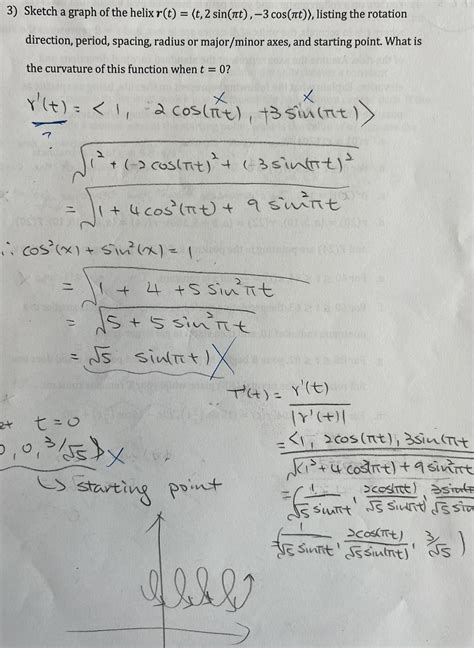 3) Sketch a graph of the helix r(t) = ⟨t, 2 sin(πt), −3 cos(πt)⟩, listing the rotation
direction, period, spacing, radius or major/minor axes, and starting point. What is
the curvature of this function when t = 0?
r'(t) = < 1, -2 cos(πt), +3 sin(πt) >
x x
?
√(1² + (-2 cos(πt)² + (-3 sin(πt)²
= √(1 + 4 cos²(πt) + 9 sin²πt
∴ cos²(x) + sin²(x) = 1
= √(1 + 4 + 5 sin²πt
= √(5 + 5 sin²πt
= √5 sin(πt) X
T'(t) = r'(t) / |r'(t)|
t = 0
0, 3/√5 > X
↳ starting point
= <1, 2cos(πt), 3sin(πt
√(1² + 4 cos²(πt) + 9 sin²πt
= ( 1/√5 sinπt, 2cos(πt)/√5 sin(πt)
( 1/√5 sinπt, 2cos(πt)/√5 sin(πt), 3/√5 )